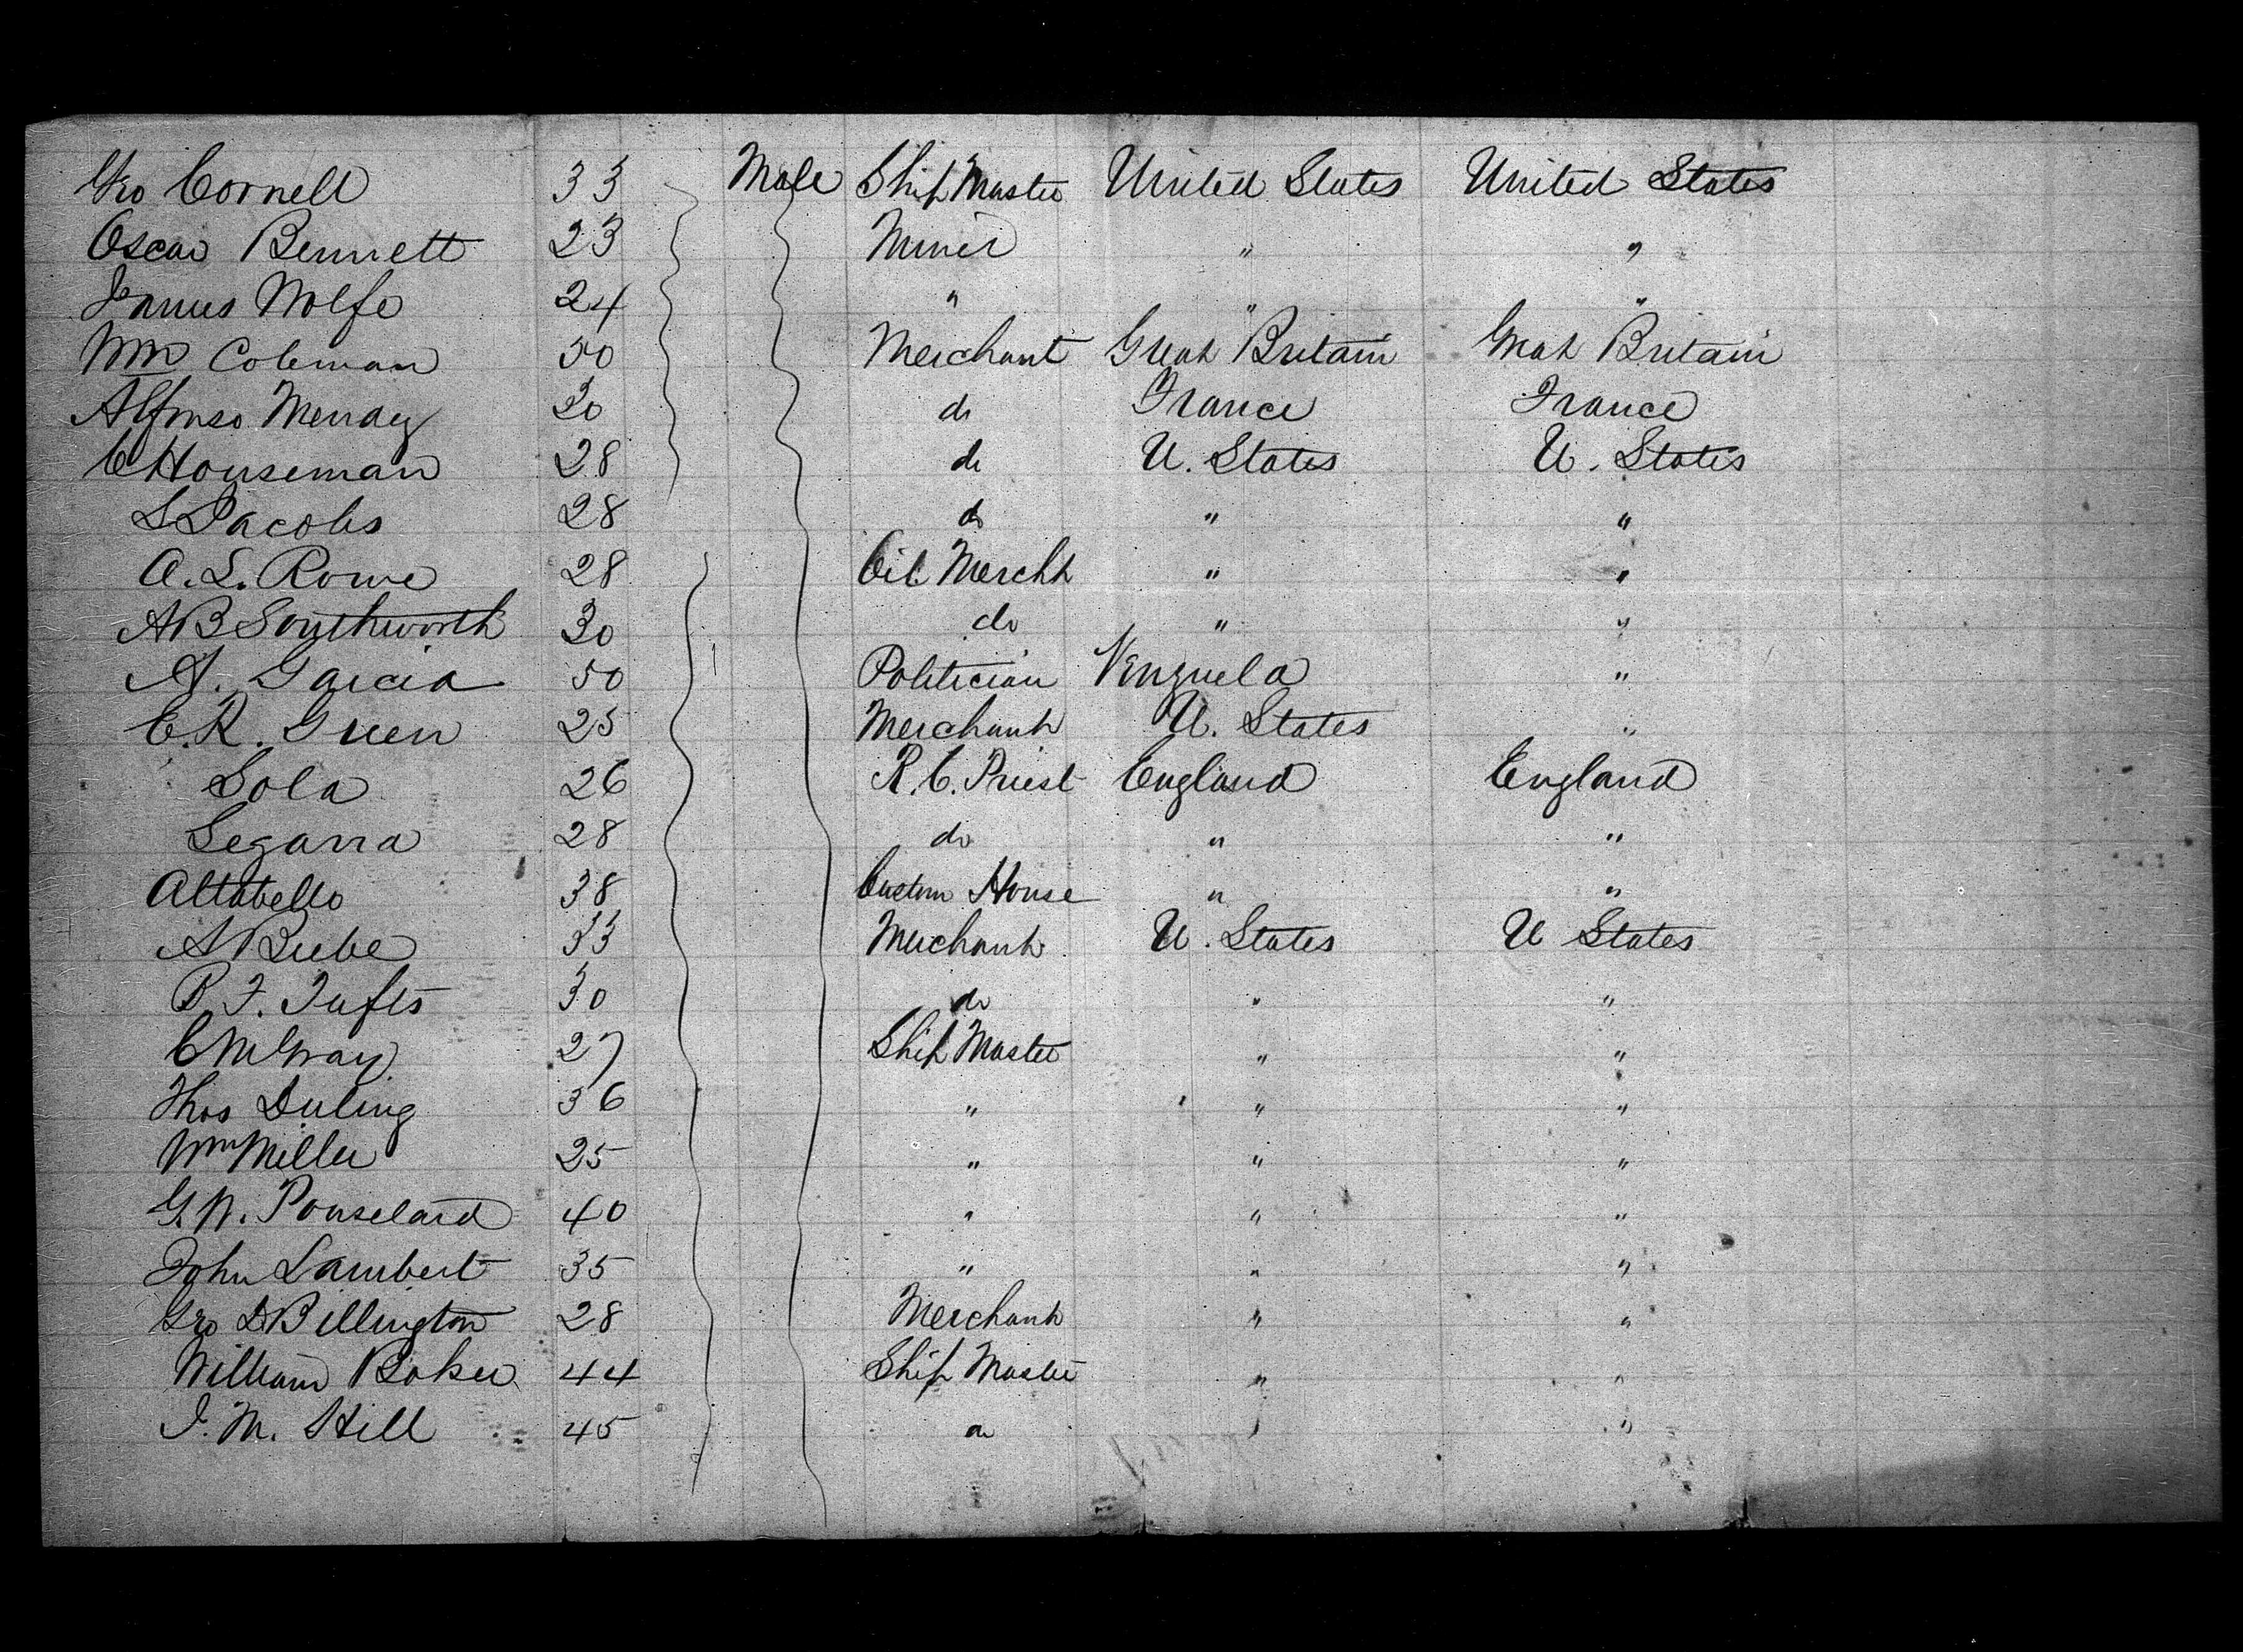 Geo Cornell 33 Male Ship Master United States United States
Oscar Bennett 23 Miner " "
James Wolfe 24 " " "
Wm Coleman 50 Merchant Great Britain Great Britain
Alfonso 30 do France France
C Houseman 28 do U. States U. States
S Jacobs 28 do " "
A. L. Rowe 28 Oil Mercht " "
AB Southworth 30 do " "
A. Garcia 50 Politician Venzuela "
C. R. Green 25 Merchant U. States "
Sola 26 R. C. Priest England England
Segarra 28 do " "
Altabello 38 Custom House " "
A Bube 33 Merchant U. States U States
P. F. Tufts 30 do " "
C M Gray 27 Ship Master " "
Thos Duling 36 " " "
Wm Miller 25 " " "
G. W. Pouseland 40 " " "
John Lambert 35 " " "
Geo D Billington 28 Merchant " "
William Baker 44 Ship Master " "
J. M. Hill 45 " " "